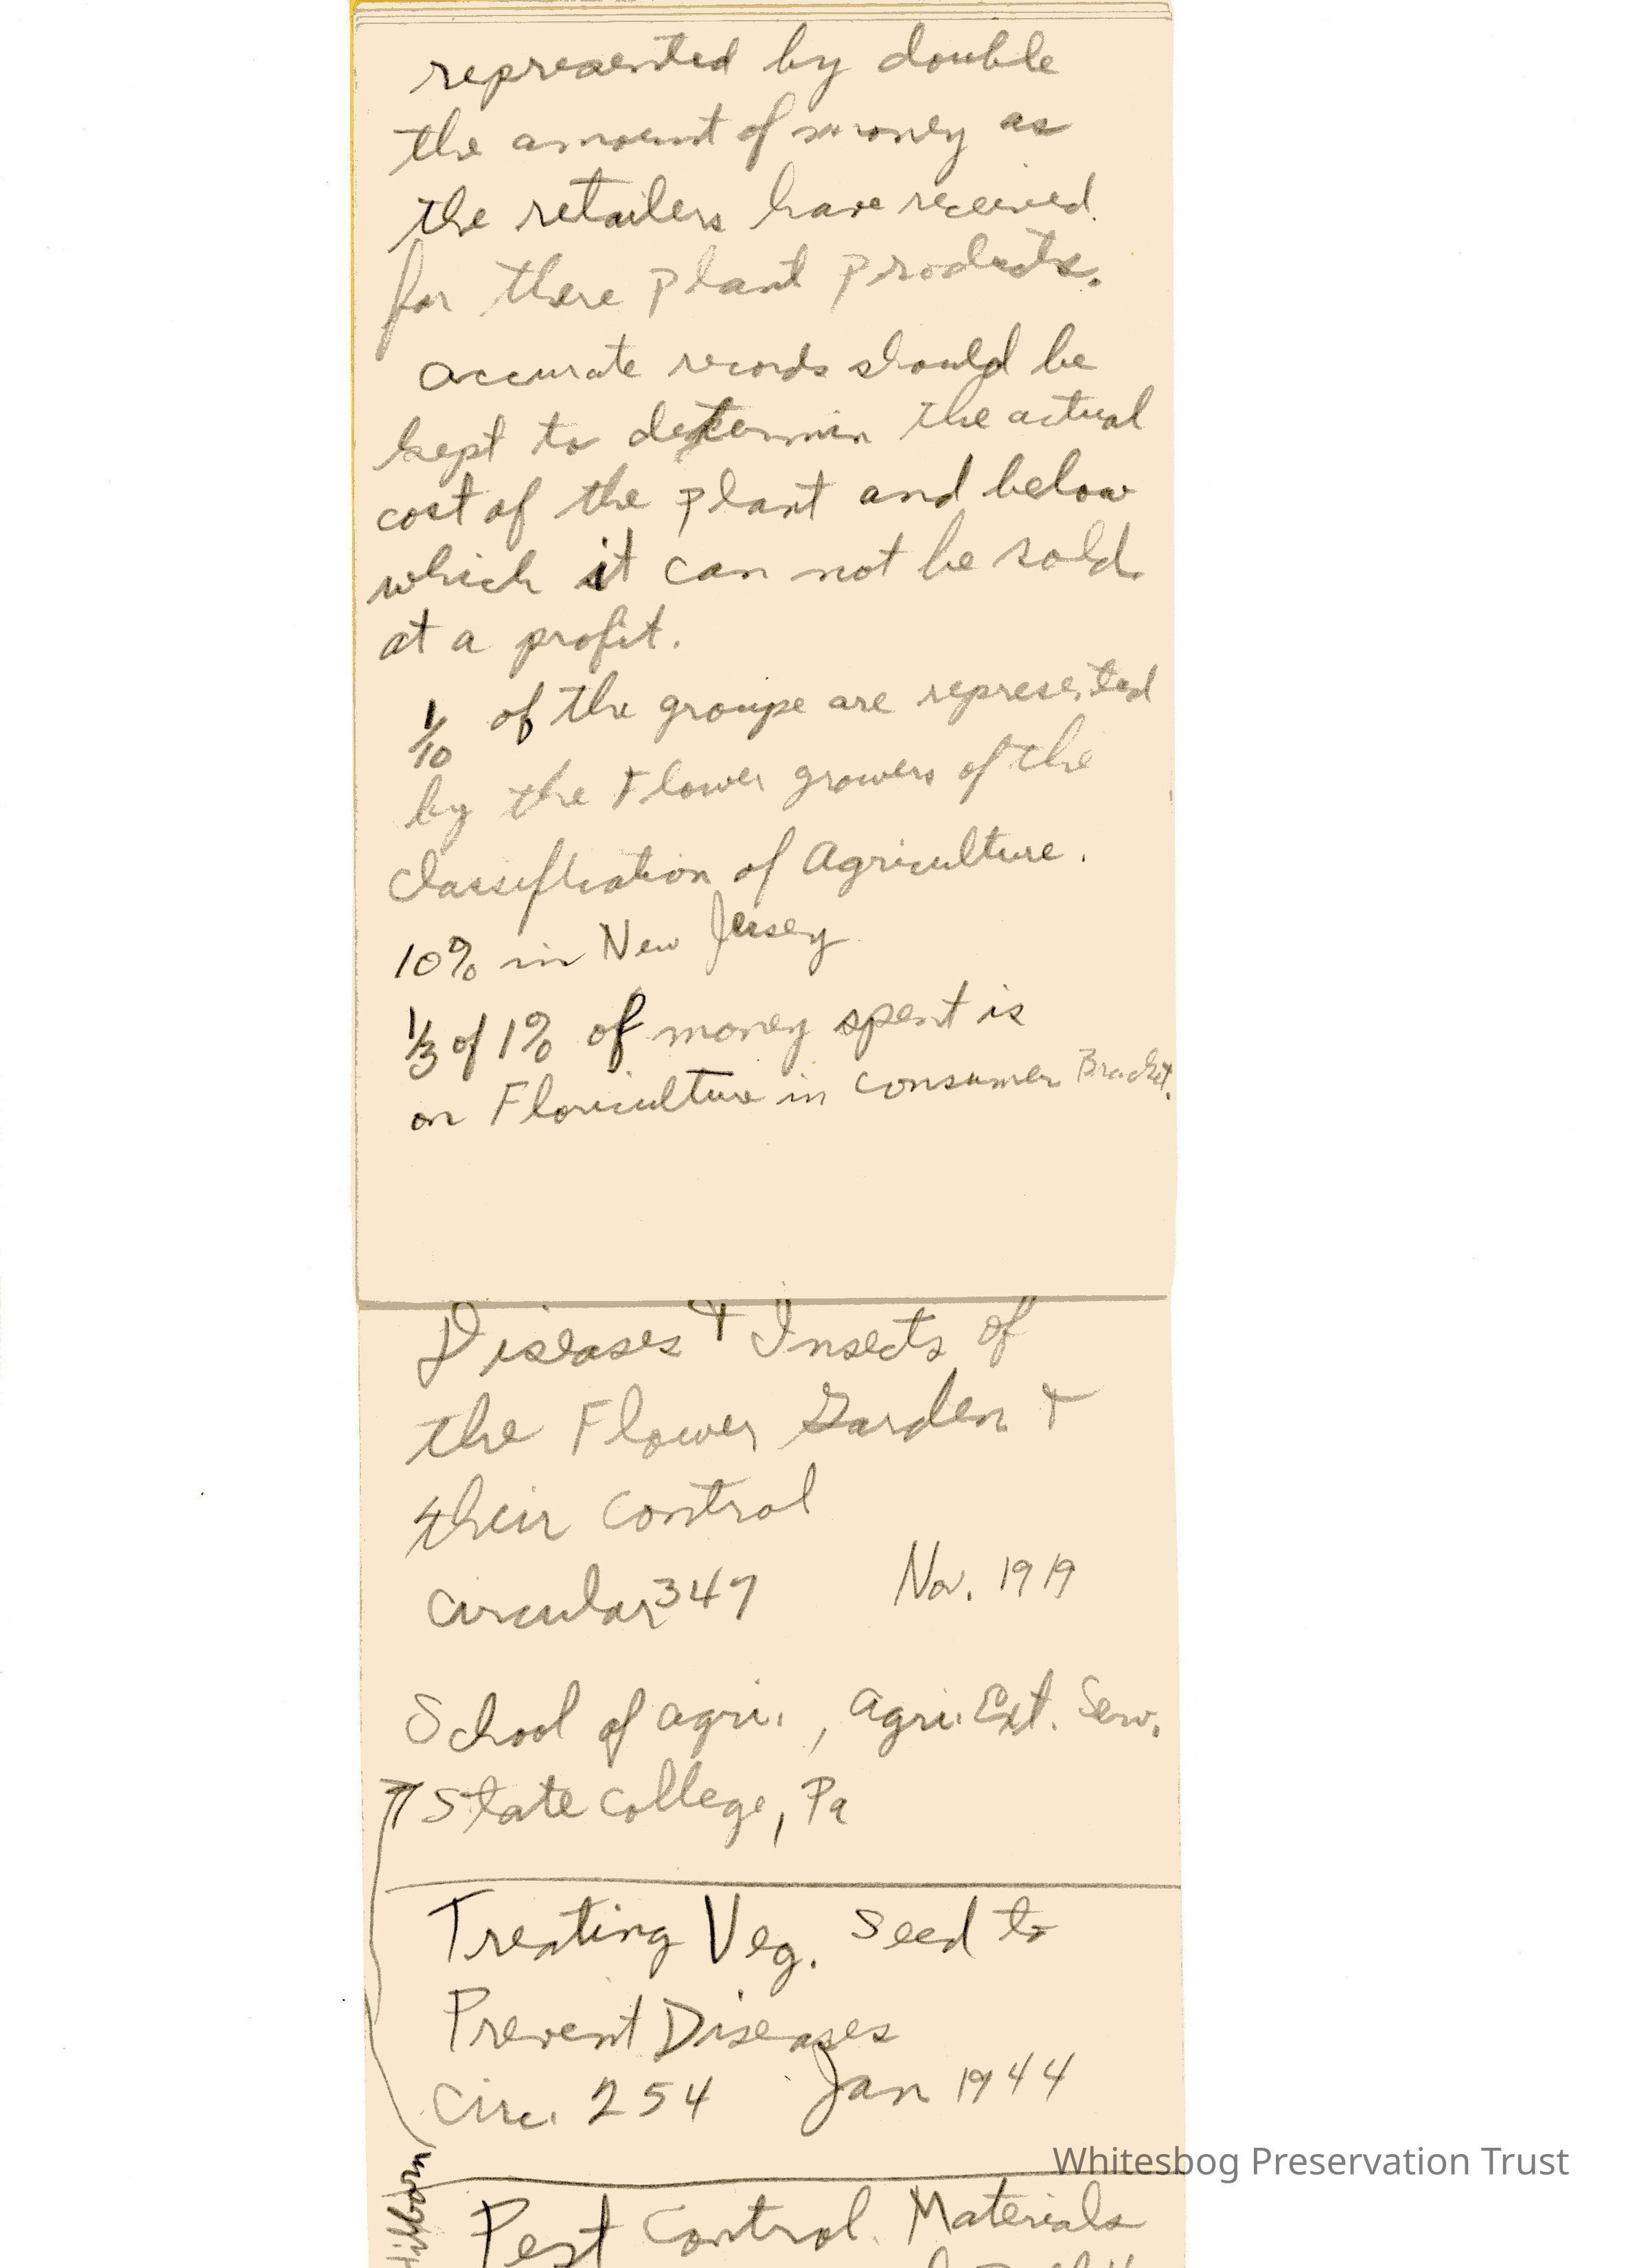 represented by double
the amount of money as
the retailers have received
for there plant products.
accurate records should be
kept to determin the actual
cost of the plant and below
which it can not be sold
at a profit.
1/10 of the groupe are represented
by the Flower growers of the
Classification of Agriculture.
10% in New Jersey
1/3 of 1% of money spent is
on Floriculture in consumer Bracket.
Diseases & Insects of
the Flower Garden &
their control
Circular 347 Nov. 1919
School of agri., Agri. Ext. Serv.
State College, Pa
Treating Veg. Seed to
Prevent Diseases
Circ. 254 Jan 1944
Hibborn
Pest Control Materials
Whitesbog Preservation Trust